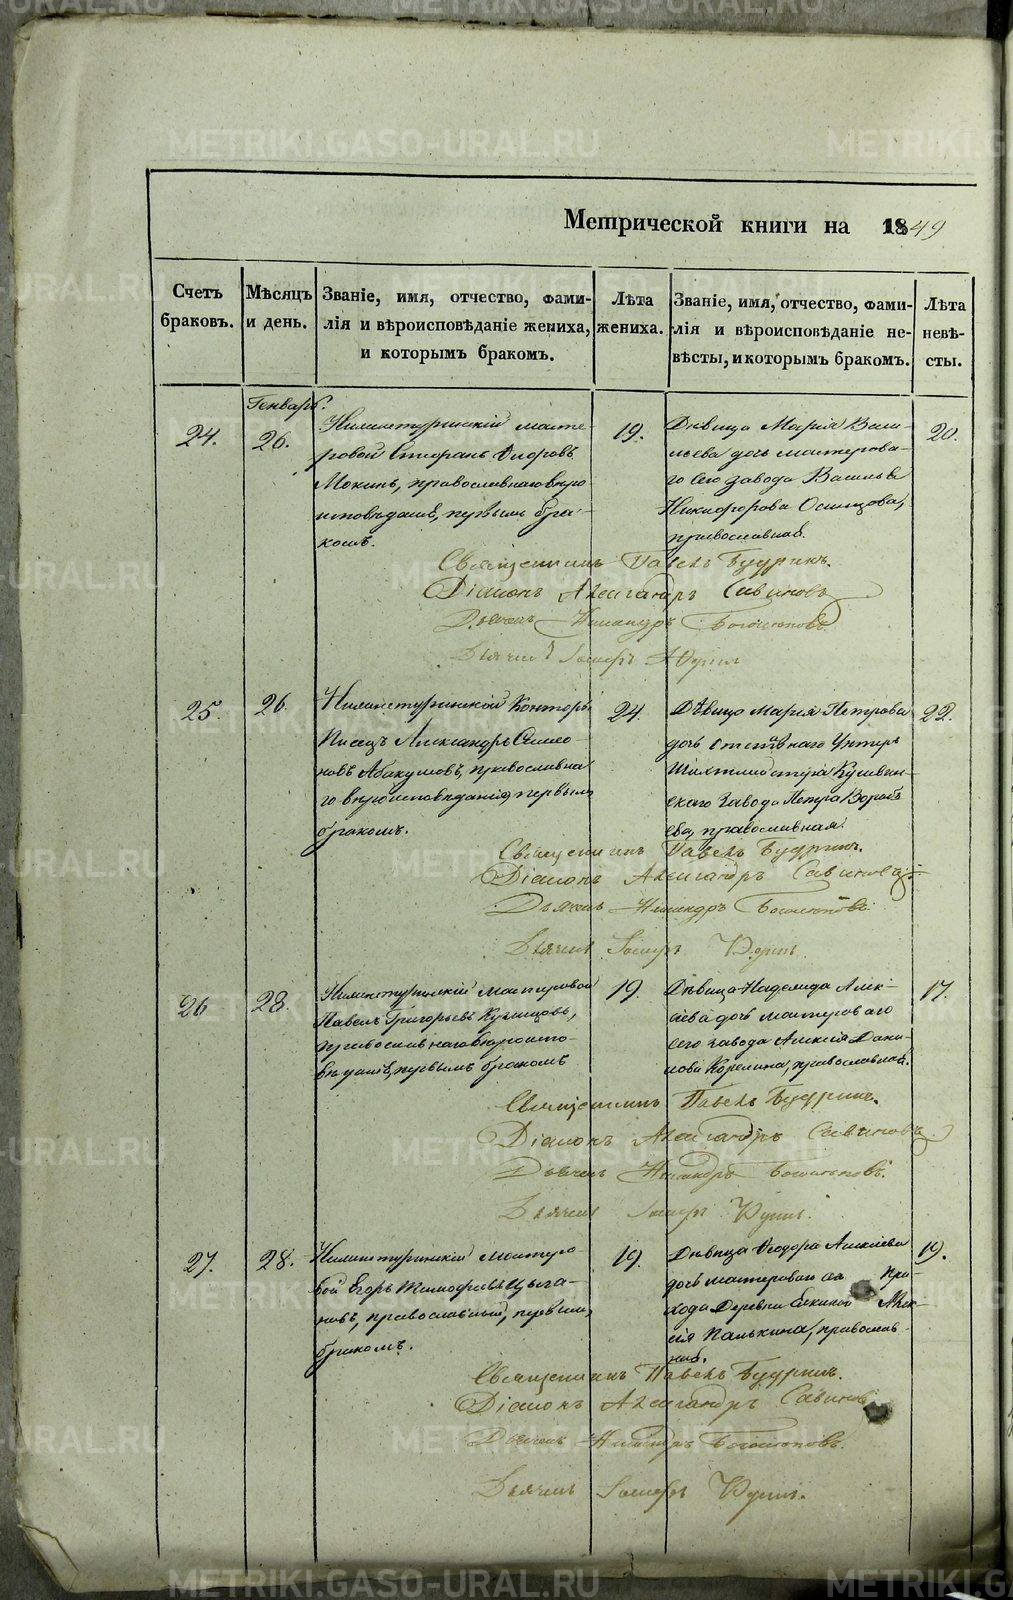 Метрической книги на 1849
Счетъ браковъ.
Мѣсяцъ и день.
Званіе, имя, отчество, фами-
лія и вѣроисповѣданіе жениха,
и которымъ бракомъ.
Лѣта жениха.
Званіе, имя, отчество, фами-
лія и вѣроисповѣданіе не-
вѣсты, и которымъ бракомъ.
Лѣта невѣ-
сты.
Генварь.
24.
26.
Нижнетуринскій масте-
ровой
Мокинъ, православнаго вѣро
исповѣданія, первымъ бра-
комъ.
19.
Дѣвица Марія Васи-
льева дочь мастерова-
го сего завода Василья
Никифорова Осинцова,
православная.
20.
Священникъ Павелъ Будринъ.
Діаконъ Александръ Савиновъ
Дьячекъ Никандръ
Дьячекъ
25.
26.
Нижнетуринской Конторы
Писецъ Александръ Симео-
новъ Абакумовъ, православна
го вѣроисповѣданія, первымъ
бракомъ.
24.
Дѣвица Марія Петрова
дочь отставнаго Унтеръ
Шихтмейстера Кушвин-
скаго завода Петра Вороб
ева, православная.
22.
Священникъ Павелъ Будринъ.
Діаконъ Александръ Савиновъ
Дьячекъ Никандръ
Дьячекъ
26
28.
Нижнетуринскій мастеровой
Павелъ Григорьевъ Кузнецовъ,
православнаго вѣроиспо-
вѣданія, первымъ бракомъ
19.
Дѣвица Надежда Алек-
сѣева дочь мастероваго
сего завода Алексія Дани-
лова Корелина, православная.
17.
Священникъ Павелъ Будринъ.
Діаконъ Александръ Савиновъ
Дьячекъ Никандръ
Дьячекъ
27.
28.
Нижнетуринскій мастеро-
вой Егоръ Тимофеевъ Цыга-
новъ, православный, первымъ
бракомъ.
19.
Дѣвица Ѳеодора Алексіева
дочь мастероваго При-
хода Деревни Елкиной Алек-
сія Палькина, православ-
ная.
19.
Священникъ Павелъ Будринъ.
Діаконъ Александръ Савиновъ
Дьячекъ Никандръ
Дьячекъ
METRIKI.GASO-URAL.RU